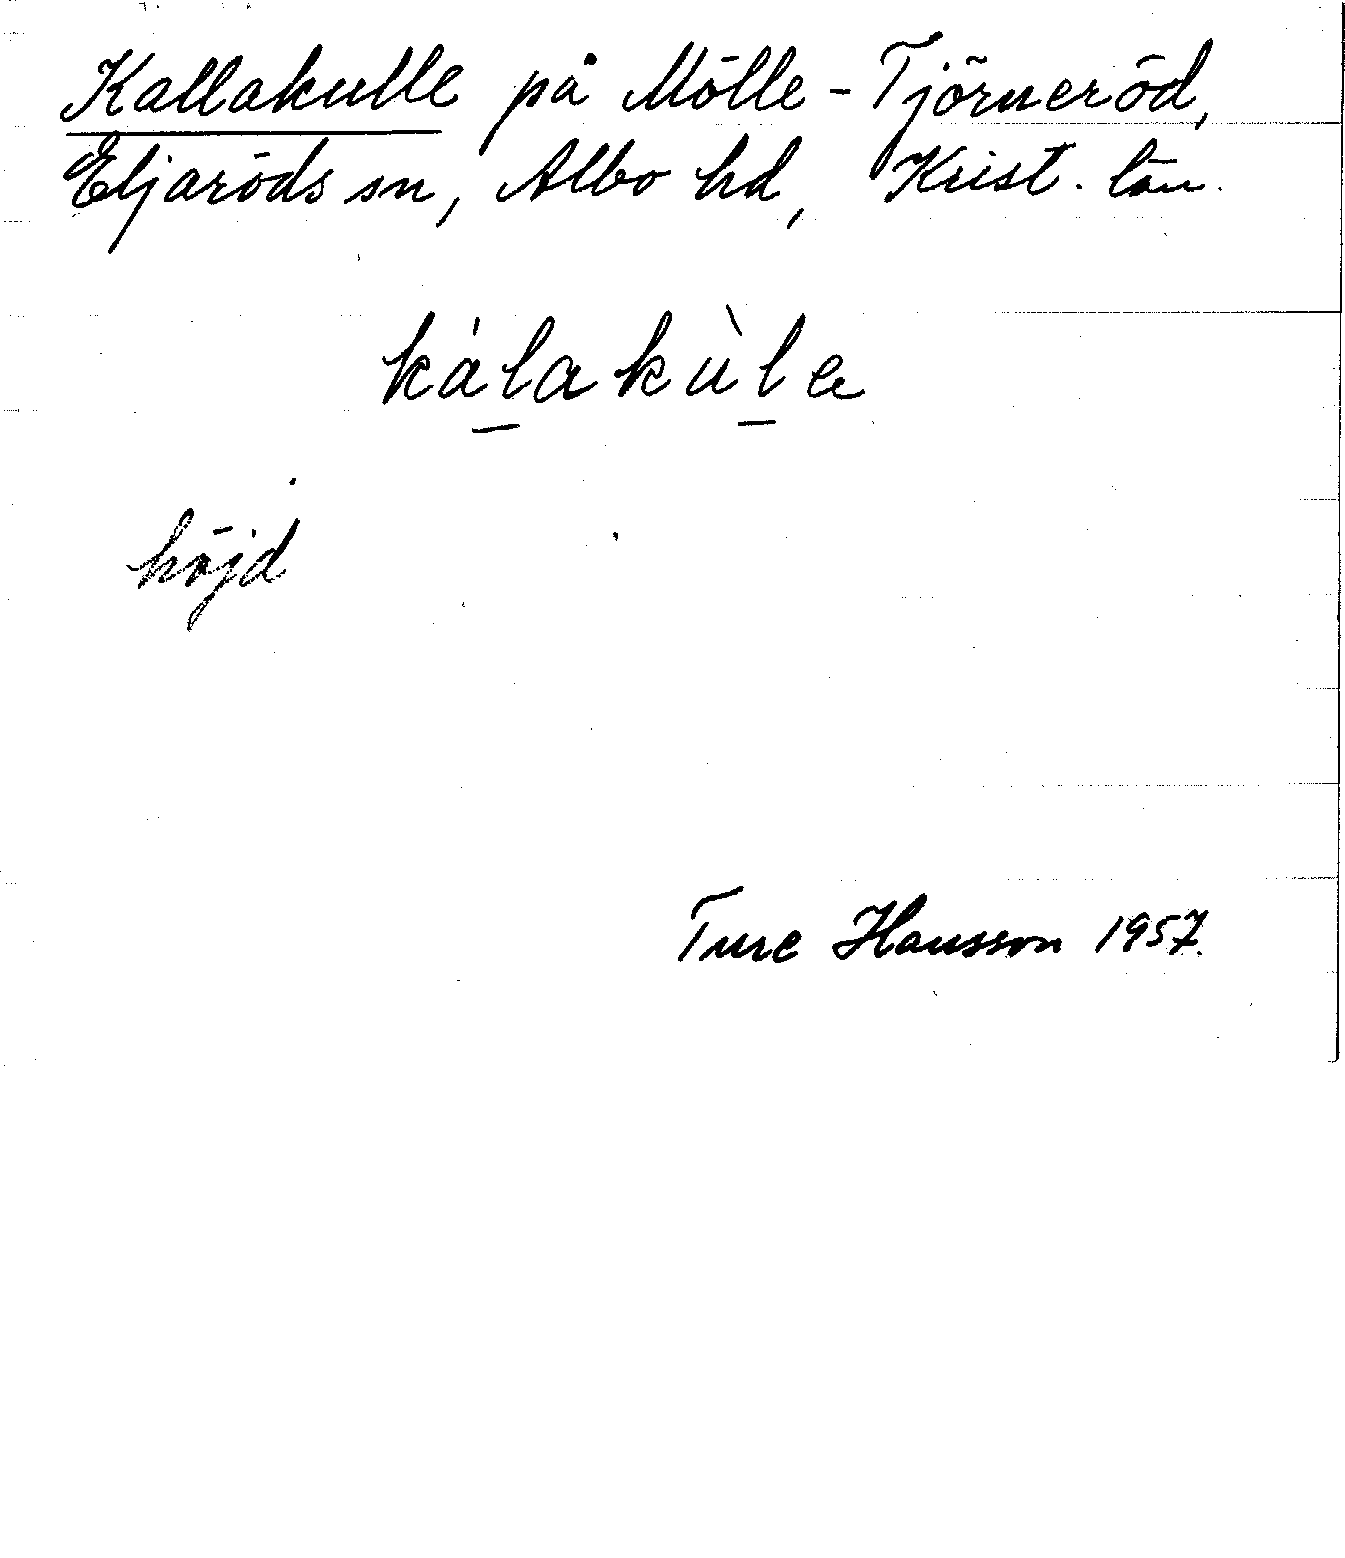 Kallakulle på Mölle-Tjörneröd,
Eljaröds sn, Albo hd, Krist. län.
ka̍l̠akùl̠ə
höjd
Ture Hansson 1957.